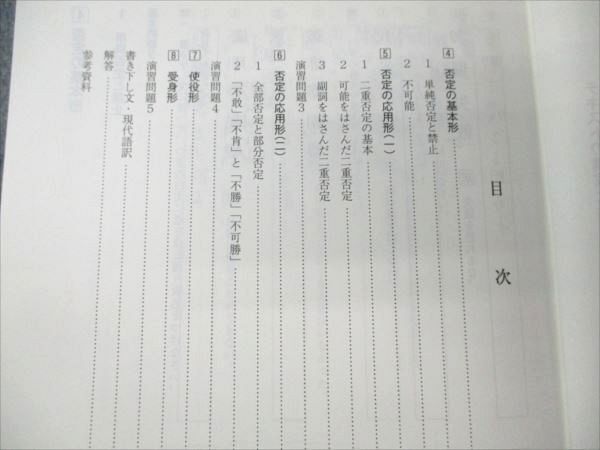 目次
4 否定の基本形
1 単純否定と禁止
2 不可能
5 否定の応用形(一)
1 二重否定の基本
2 可能をはさんだ二重否定
3 副詞をはさんだ二重否定
演習問題3
6 否定の応用形(二)
1 全部否定と部分否定
2 「不敢」「不肯」と「不勝」「不可勝」
演習問題4
7 使役形
8 受身形
演習問題5
書き下し文・現代語訳
解答
参考資料